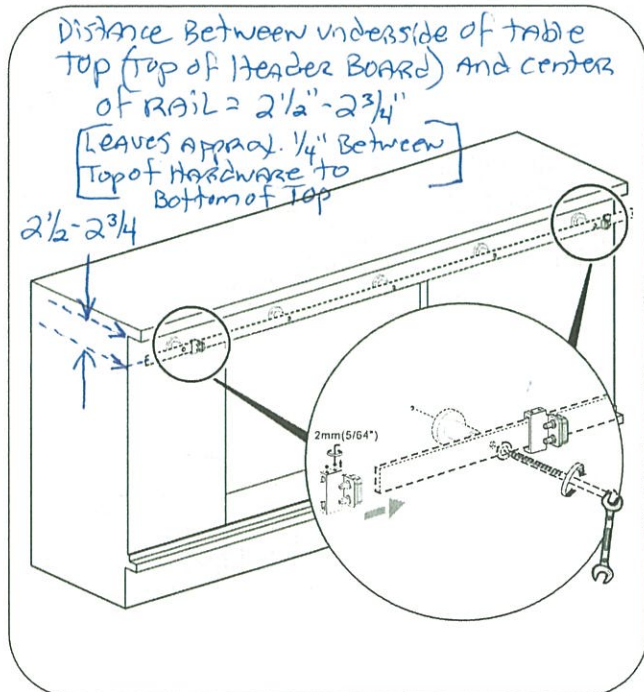 Distance Between underside of table
Top (Top of Header BOARD) And center
of RAIL = 2 1/2" - 2 3/4"
[Leaves Approx. 1/4" Between
Top of HARDWARE to
Bottom of Top]
2 1/2 - 2 3/4
2mm(5/64")